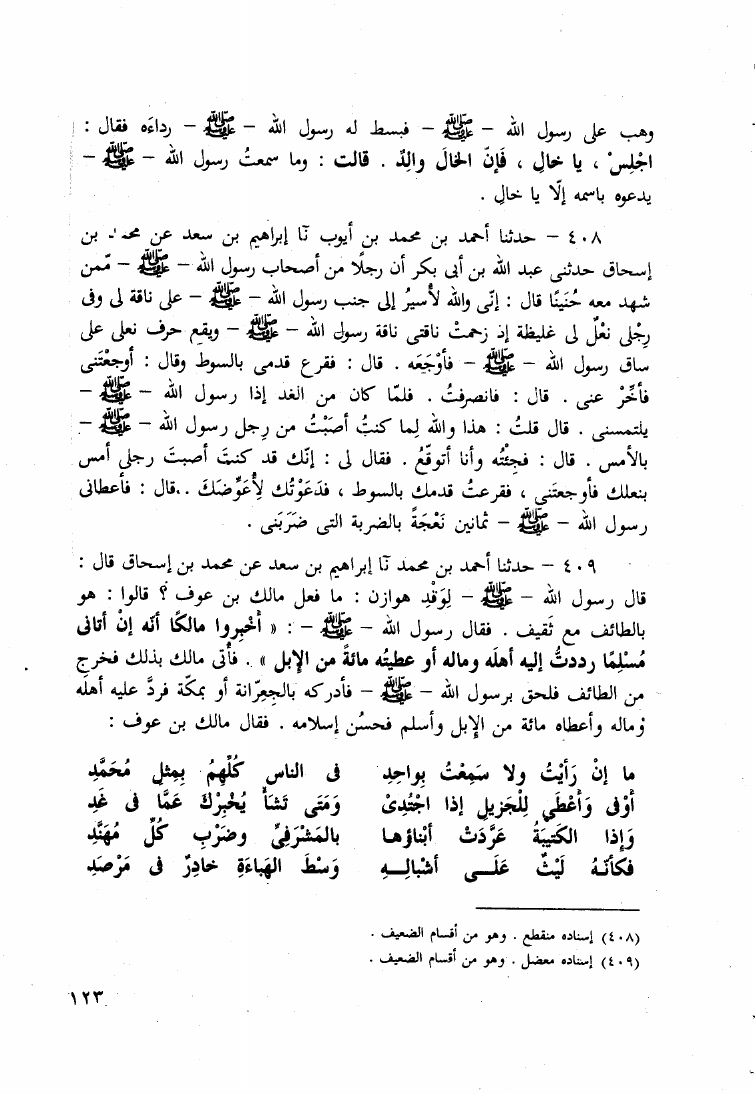 وهب على رسول الله – ﷺ – فبسط له رسول الله – ﷺ – رداءَه فقال :
اجْلِسْ ، يا خالِ ، فَإنّ الخالَ والِدٌ . قالت : وما سمعتُ رسول الله – ﷺ –
يدعوه باسمه إلّا يا خالِ .
٤٠٨ – حدثنا أحمد بن محمد بن أيوب نَا إبراهيم بن سعد عن محمد بن
إسحاق حدثنى عبد الله بن أبى بكر أن رجلًا من أصحاب رسول الله – ﷺ – مّمن
شهد معه حُنَينًا قال : إنّى والله لأسيرُ إلى جنب رسول الله – ﷺ – على ناقة لى وفى
رِجْلى نعْلٌ لى غليظة إذ زحمتْ ناقتى ناقة رسول الله – ﷺ – ويقع حرف نعلى على
ساق رسول الله – ﷺ – فأوْجَعَه . قال : فقرع قدمى بالسوط وقال : أوجعْتَنى
فأخِّرْ عنى . قال : فانصرفتُ . فلمّا كان من الغد إذا رسول الله – ﷺ –
يلتمسنى . قال قلتُ : هذا والله لِما كنتُ أصَبْتُ من رِجل رسول الله – ﷺ –
بالأمس . قال : فجِئْته وأنا أتوقّعُ . فقال لى : إنّك قد كنتَ أصبتَ رجلى أمس
بنعلك فأوجعتَنى ، فقرعتُ قدمك بالسوط ، فدَعَوْتُك لِأُعَوِّضَكَ . قال : فأعطانى
رسول الله – ﷺ – ثمانين نَعْجَةً بالضربة التى ضَرَبَنى .
٤٠٩ – حدثنا أحمد بن محمد نَا إبراهيم بن سعد عن محمد بن إسحاق قال :
قال رسول الله – ﷺ – لِوَفْدِ هوازن : ما فعل مالك بن عوف ؟ قالوا : هو
بالطائف مع ثَقيف . فقال رسول الله – ﷺ – : « أخْبِروا مالكًا أنّه إنْ أتانى
مُسْلِمًا رددتُّ إليه أهلَه وماله أو عطيتُه مائةً من الإبل » . فأتى مالك بذلك فخرج
من الطائف فلحق برسول الله – ﷺ – فأدركه بالجِعِرّانة أو بمكّة فردَّ عليه أهلَه
وماله وأعطاه مائة من الإبل وأسلم فحسُن إسلامه . فقال مالك بن عوف :
ما إنْ رَأيْتُ ولا سَمِعْتُ بِواحِدِ فى الناس كُلِّهِمُ بِمِثلِ مُحَمَّدِ
أوْفى وَأعْطَي لِلْجَزيلِ إذا اجْتُدِىْ وَمَتَى تَشَأْ يُخْبِرْكَ عَمَّا فى غَدِ
وَإذا الكَتيبَةُ عَرَّدَتْ أبْناؤها بالمَشْرَفىِّ وضَرْبِ كُلِّ مُهَنَّدِ
فكأنّهُ لَيْثٌ عَلَى أشْبالِهِ وَسْطَ الهَباءَةِ خادِرٌ فى مَرْصَدِ
(٤٠٨) إسناده منقطع . وهو من أقسام الضعيف .
(٤٠٩) إسناده معضل . وهو من أقسام الضعيف .
١٢٣